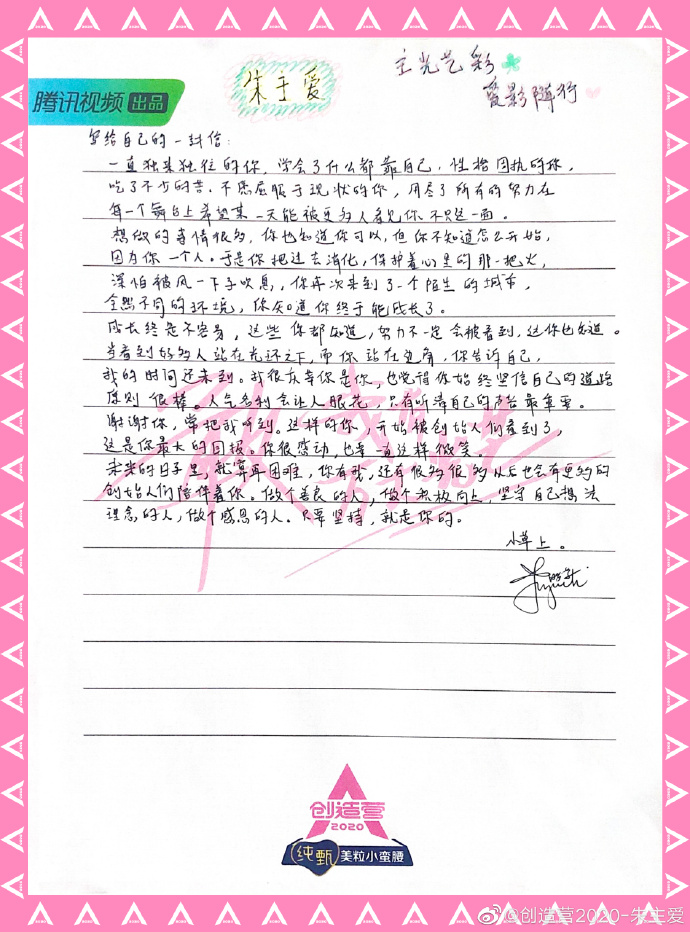 主光艺彩
爱影随行
朱主爱
腾讯视频 出品
写给自己的一封信:
一直独来独往的你,学会了什么都靠自己,性格固执的你,
吃了不少的苦.不愿屈服于现状的你,用尽了所有的努力在
每一个舞台上希望某一天能被更多人看见你不只这一面。
想做的事情很多,你也知道你可以,但你不知道怎么开始,
因为你一个人。于是你把过去消化,你护着心里的那一把火,
深怕被风一下子吹息,你再次来到了一个陌生的城市,
全然不同的环境,你知道你终于能成长了。
成长终是不容易,这些你都知道,努力不一定会被看到,这你也知道。
当看到好多人站在光环之下,而你站在边角,你告诉自己,
我的时间还未到。我很庆幸你是你,也觉得你始终坚信自己的道路
原则很棒。人气名利会让人眼花,只有听清自己的声音最重要。
谢谢你,常把我听到。这样的你,开始被创始人们看到了,
这是你最大的回报。你很感动,也要一直这样微笑。
未来的日子里,就算再困难,你有我,还有很多很多以后也会有更多的
创始人们陪伴着你。做个善良的人,做个积极向上,坚守自己想法
理念的人,做个感恩的人.只要坚持,就是你的。
小草上。
创造营
2020
纯甄 美粒小蛮腰
@创造营2020-朱主爱